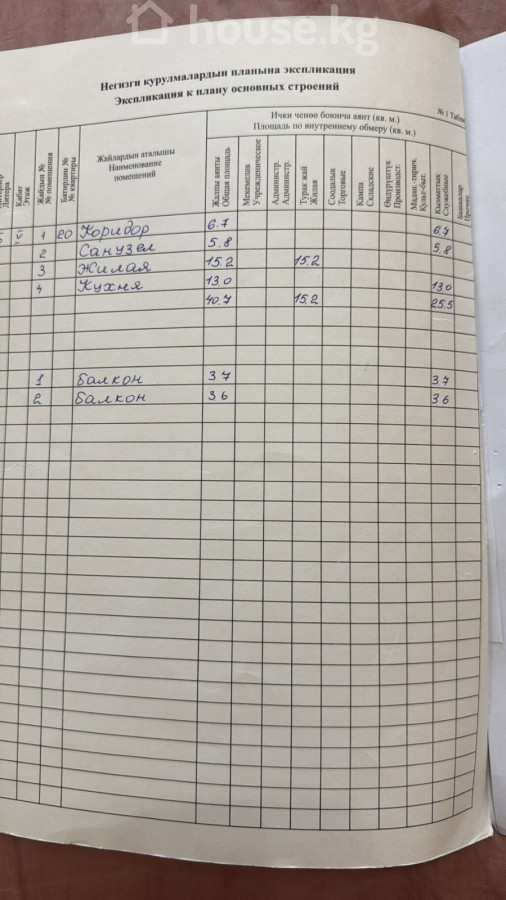 house.kg
Негизги курулмалардын планына экспликация
Экспликация к плану основных строений
№ 1 Табли
Ички ченөө боюнча аянт (кв. м.)
Площадь по внутреннему обмеру (кв. м.)
Литера
Кабат Этаж
Жайдын № № помещения
Батирдин № № квартиры
Жайлардын аталышы
Наименование
помещений
Жалпы аянты Общая площадь
Мекемелик Учрежденическое
Администр. Администр.
Турак жай Жилая
Соодалык Торговые
Кампа Складские
Өндүрүштүк Производст.
Мадан.-тирич. Культ-быт.
Кызматтык Служебные
Башкалар Прочие
Б V 1 20 Коридор 6.7 6,7
2 Санузел 5.8 5,8
3 Жилая 15.2 15.2
4 Кухня 13.0 13.0
40.7 15.2 25.5
1 балкон 3 7 3 7
2 балкон 3 6 3 6